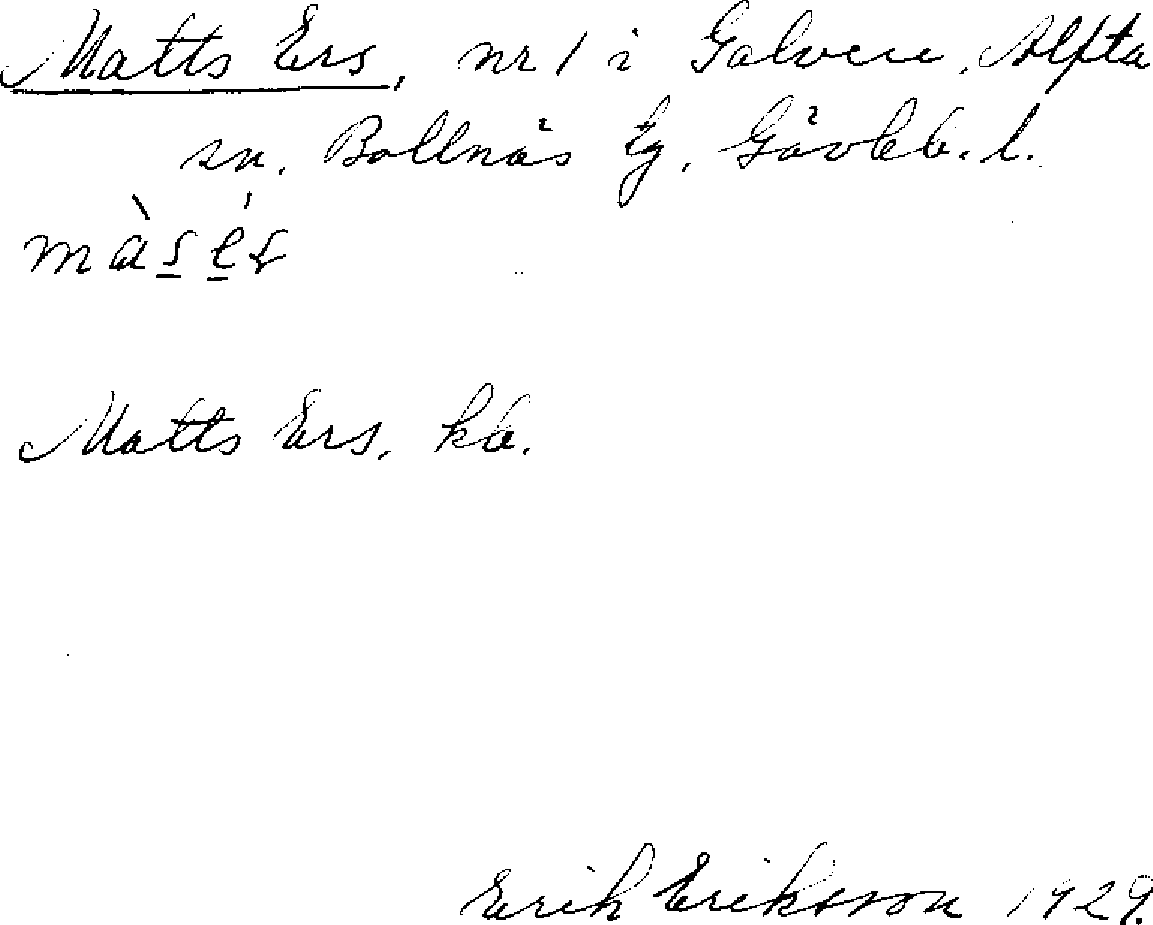 Matts Ers, nr 1 i Galven, Alfta
sn. Bollnäs tg, Gävleb. l.
Matts Ers, kb.
Erik Eriksson 1929.